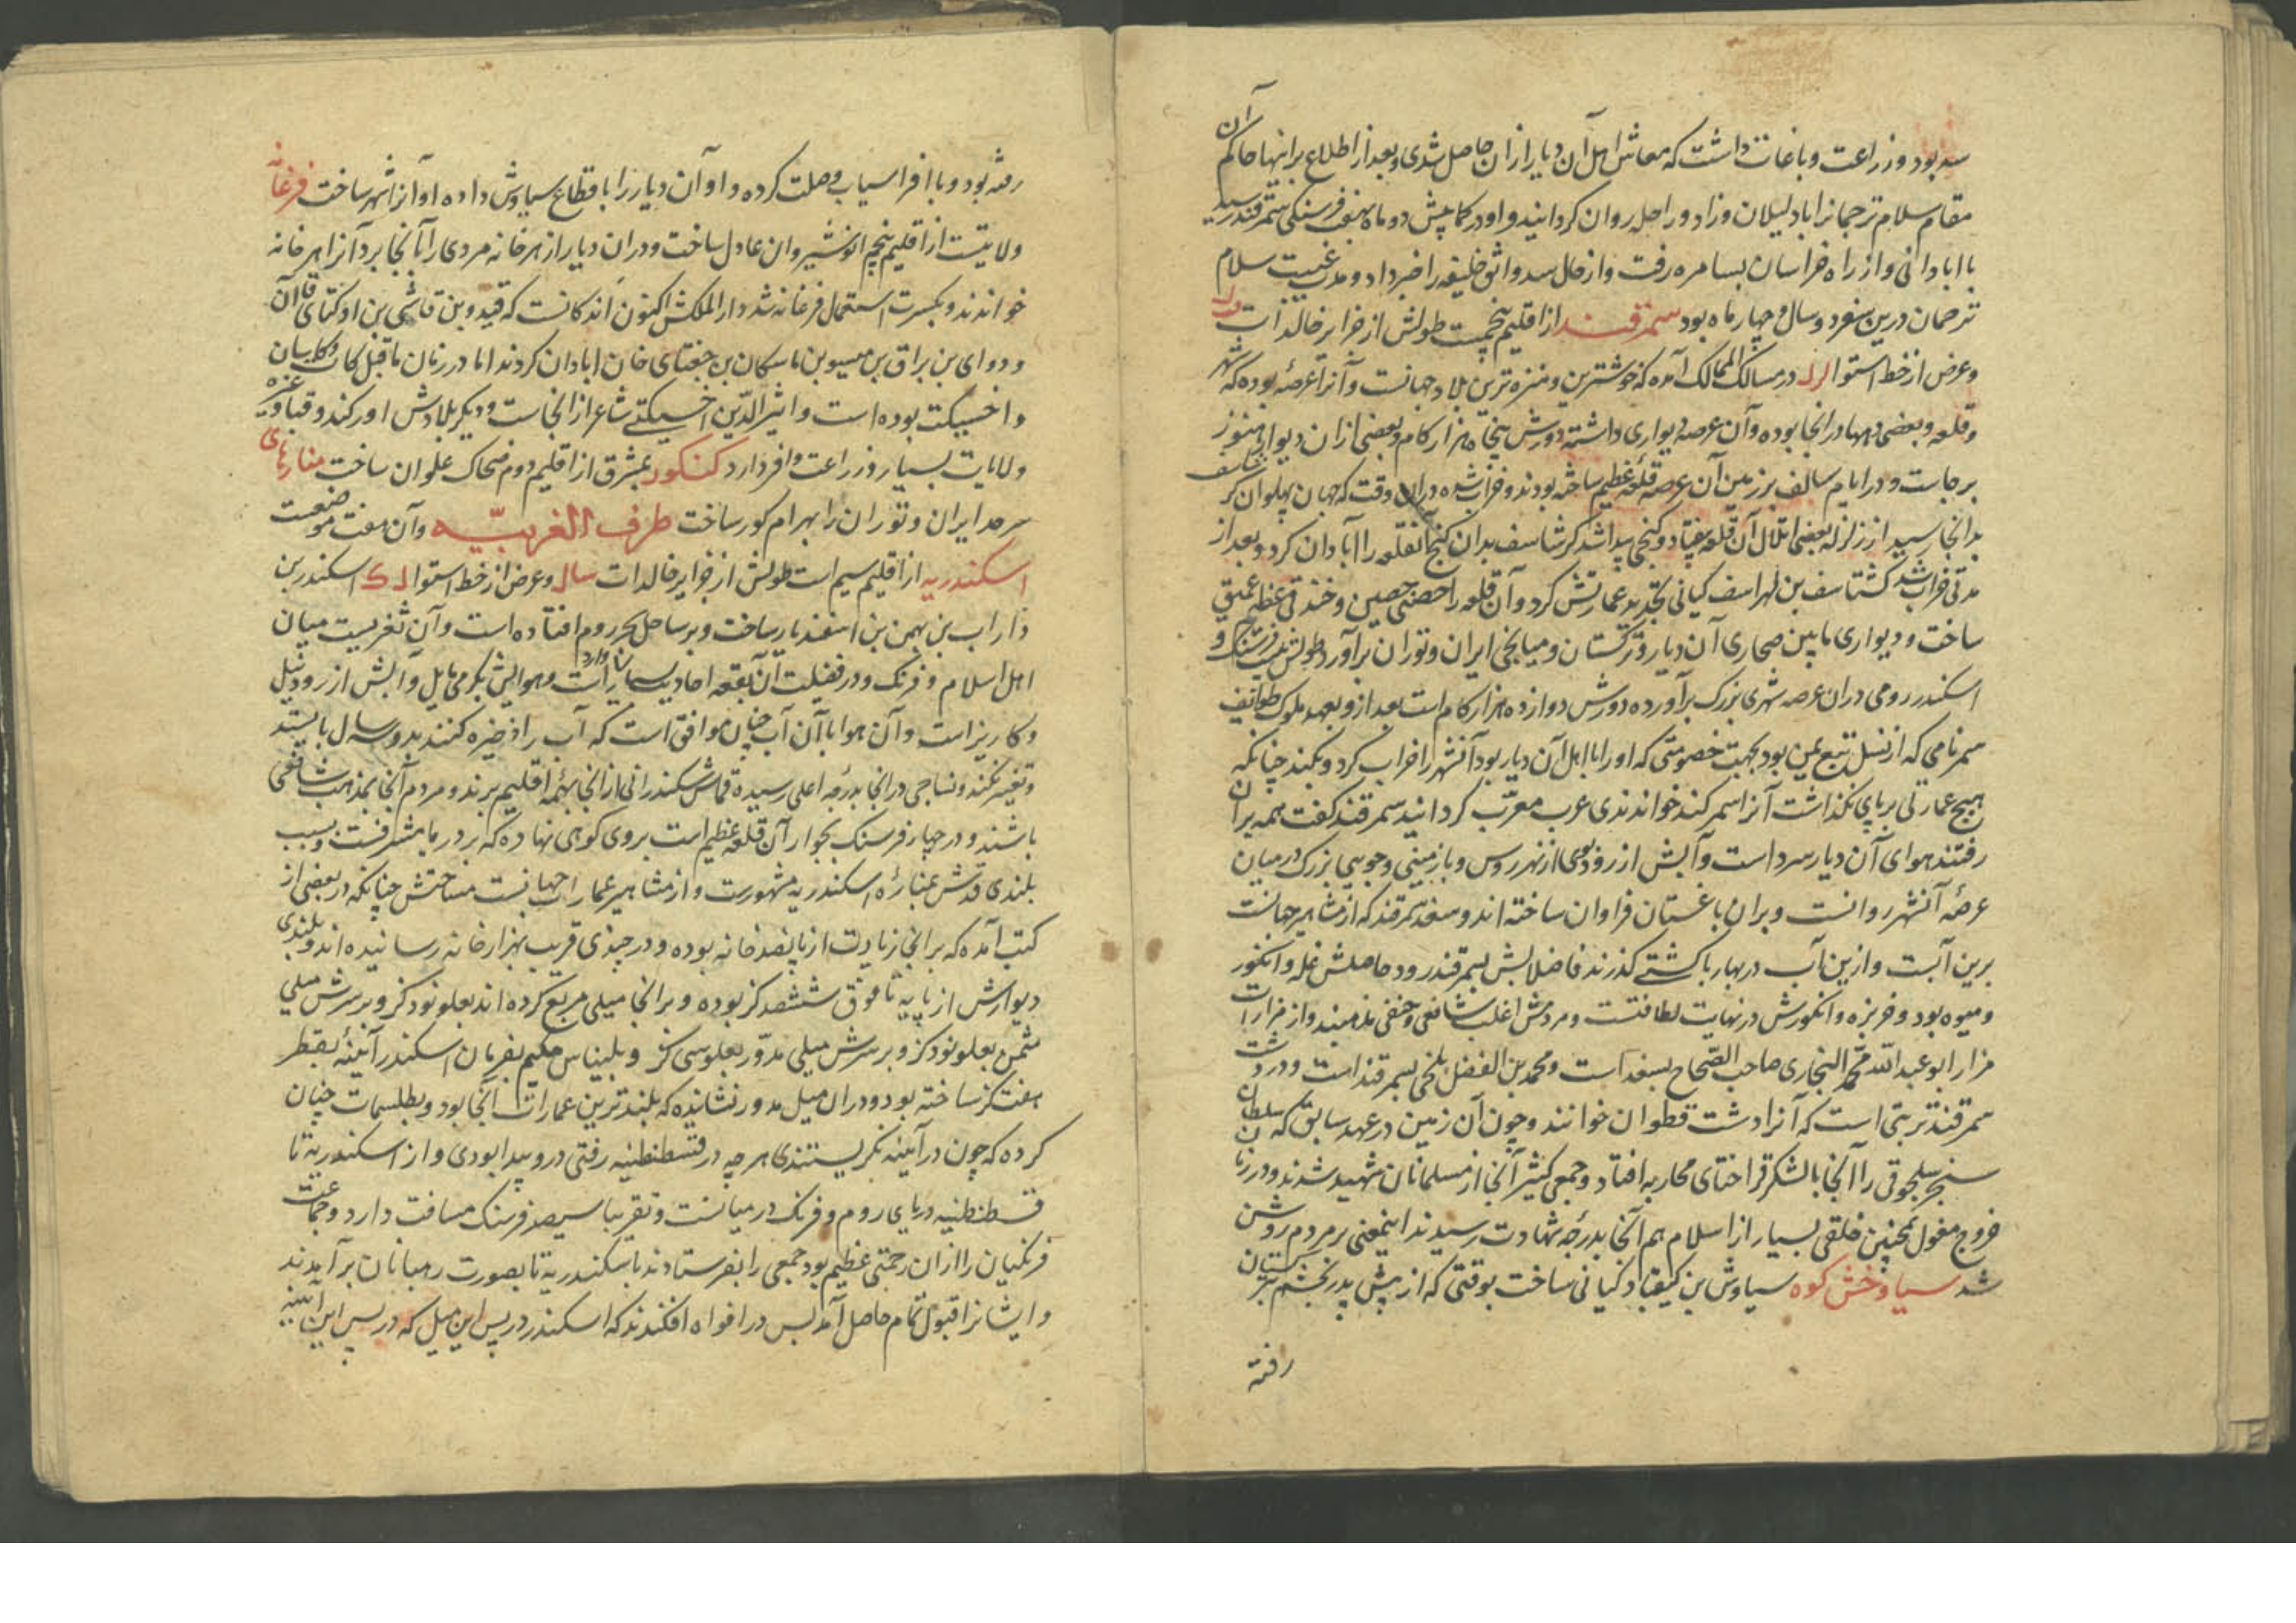 سد بود و زراعت و باغات داشت که معاش اهل آن دیار از ان حاصل شدی و بعد از اطلاع بر اینها حاکم آن
مقام سلام ترجمانرا با دلیلان و زاد و راحله روان کردانید و او در کمابیش دو ماه بهفت فرسنکی سمرقند رسید
بآبادانی و از راه خراسان بسامره رفت و از حال سد واثق خلیفه را خبر داد و مدت غیبت سلام
ترجمان درین سفر دو سال و چهار ماه بود سمرقند از اقلیم پنجمست طولش از جزایر خالدات
و عرض از خط استوا در مسالک الممالک آمده که خوشترین و منزه ترین بلاد جهانست و آنرا عرصهٔ بوده که شهر
و قلعه و بعضی دیهها در انجا بوده و آن عرصه دیواری داشته دورش پنجاه هزار کام و بعضی از ان دیوار هنوز
بر جاست و در ایام سالف بر زمین آن عرصه قلعهٔ عظیم ساخته بودند و خراب شده در ان وقت که جهان پهلوان کرشاسف
بدانجا رسید از زلزله بعضی اتلال آن قلعه بیفتاد و کنجی پیدا شد کرشاسف بدان کنج آنقلعه را آبادان کرد و بعد از
مدتی خراب شد کشتاسف بن لهراسف کیانی تجدید عمارتش کرد و آن قلعه را حصنی حصین و خندقی عظیم عمیق
ساخت و دیواری مابین صحاری آن دیار و ترکستان و میانجی ایران و توران برآورد طولش بیست فرسنک و
اسکندر رومی در ان عرصه شهری بزرک برآورده دورش دوازده هزار کام است بعد ازو بعهد ملوک طوایف
سمر نامی که از نسل تبع یمن بود بجهت خصومتی که او را با اهل آن دیار بود آنشهر را خراب کرد و بکند چنانکه
هیچ عمارتی بر پای نکذاشت آنرا سمرکند خواندندی عرب معرّب کردانید سمرقند کفت همه بر ان
رفتند هوای آن دیار سرد است و آبش از رود و از نهر روس و باز مینی و جویی بزرک در میان
عرصهٔ آنشهر روانست و بر ان باغستان فراوان ساخته اند و سغد سمرقند که از مشاهیر جهانست
برین آبست و ازین آب در بهار با کشتی کذرند فاضلابش بسمرقند رود حاصلش غله و انکور
و میوه بود و خربزه و انکورش در نهایت لطافتست و مردمش اغلب شافعی و حنفی مذهبند و از مزارات
مزار ابو عبد الله محمد البخاری صاحب الصحاح بسغد است و محمد بن الفضل بلخی بسمرقند است و در دشت
سمرقند تربتی است که آنرا دشت قطوان خوانند و چون آن زمین در عهد سابق که سلطان
سنجر سلجوقی را آنجا با لشکر قراختای محاربه افتاد و جمعی کثیر آنجا از مسلمانان شهید شدند و در زمان
خروج مغول همچنین خلقی بسیار از اسلام هم آنجا بدرجه شهادت رسیدند اینمعنی بر مردم روشن
شد سیاوخش کوه سیاوش بن کیقباد کیانی ساخت بوقتی که از پیش پدر بخشم بترکستان
رفته
رفته بود و با افراسیاب وصلت کرده و او آن دیار را باقطاع سیاوش داده او آنرا شهر ساخت فرغانه
ولایتیست از اقلیم پنجم انوشیروان عادل ساخت و در ان دیار از هر خانه مردی را بآنجا برد آنرا هر خانه
خواندند و بکسرت استعمال فرغانه شد دار الملکش اکنون اندکانست که قیدو بن قاشی بن اوکتای قاآن
و دوای بن براق بن میسو بن ماسکان بن جغتای خان ابادان کردند اما در زمان ماقبل کاسان
و اخسیکت بوده است و اثیر الدین اخسیکتی شاعر از انجاست و دیکر بلادش اورکند و قبا و غیره
ولایات بسیار و زراعت وافر دارد کنکور بمشرق از اقلیم دوم ضحاک علوان ساخت منارهای
سرحد ایران و توران را بهرام کور ساخت طرف الغربیّه و آن هفت موضعست
اسکندریه از اقلیم سیم است طولش از جزایر خالدات سال و عرض از خط استوا ل ک اسکندر بن
داراب بن بهمن بن اسفندیار ساخت و بر ساحل بحر روم افتاده است و آن ثغریست میان
اهل اسلام و فرنک و در فضیلت آن بقعه احادیث بسیار وارد است و هوایش بکرمی مایل و آبش از رود نیل
و کاریز است و آن هوا با آن آب چنان موافق است که آب را ذخیره کنند بدو سه سال بایستد
و تغیر نکند و نساجی در انجا بدرجه اعلی رسیده قماش سکندرانی از انجا بهمه اقلیم برند و مردم آنجا بمذهب شافعی
باشند و در چهار فرسنک بجوار آن قلعه عظیم است بروی کوهی نهاده که بر دریا مشرفست و بسبب
بلندی قدش بمنارهٔ اسکندریه مشهورست و از مشاهیر عمارات جهانست مساحتش چنانکه در بعضی از
کتب آمده که بر انجا زیادت از پانصد خانه بوده و در چیزی قریب بهزار خانه رسانیده اند و بلندی
دیوارش از پایه تا فوق ششصد کز بوده و بر انجا میلی مربع کرده اند بعلو نود کز و بر سرش میلی
مثمن بعلو نود کز و بر سرش میلی مدوّر بعلو سی کز و بلیناس حکیم بفرمان اسکندر آئینهٔ بقطر
هفت کز ساخته بود و در ان میل مدور نشانده که بلندترین عمارات آنجا بود و بطلسمات چنان
کرده که چون در آئینه نکریستندی هر چه در قسطنطنیه رفتی درو پیدا بودی و از اسکندریه تا
قسطنطنیه دریای روم و فرنک در میانست و تقریبا سیصد فرسنک مسافت دارد و جماعت
فرنکیان را از ان زحمتی عظیم بود جمعی را بفرستادند باسکندریه تا بصورت رهبانان برآمدند
و ایشانرا قبول تمام حاصل آمد پس در افواه افکندند که اسکندر در پس این میل که در پس این آئینه